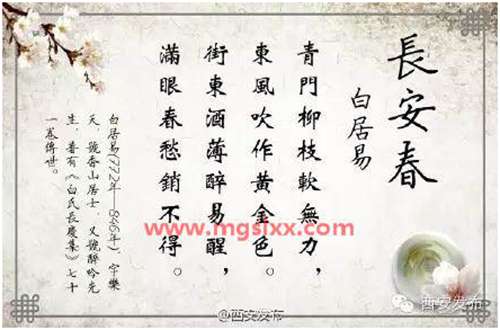 長安春
白居易
青門柳枝軟無力，
東風吹作黃金色。
街東酒薄醉易醒，
滿眼春愁銷不得。
白居易(772年—846年)，字樂
天，號香山居士，又號醉吟先
生，著有《白氏長慶集》七十
一卷傳世。
www.mgsixx.com
西安发布
@西安发布